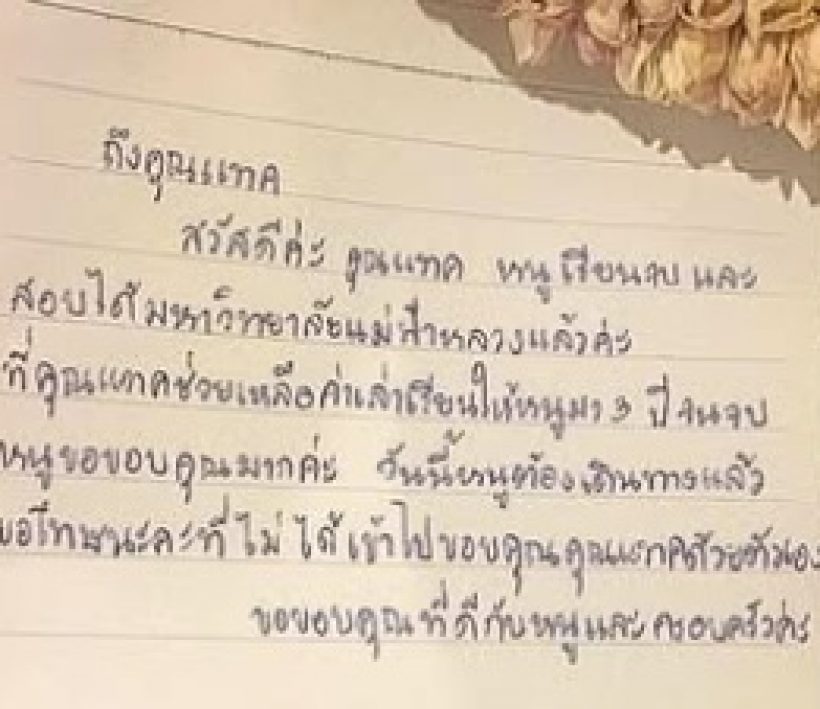 ถึงคุณแทค
สวัสดีค่ะ คุณแทค หนูเรียนจบ และ
สอบได้มหาวิทยาลัยแม่ฟ้าหลวงแล้วค่ะ
ที่คุณแทคช่วยเหลือค่าเล่าเรียนให้หนูมา 3 ปี จนจบ
หนูขอขอบคุณมากค่ะ วันนี้หนูต้องเดินทางแล้ว
ขอโทษนะคะที่ไม่ได้เข้าไปขอบคุณคุณแทคด้วยตัวเอง
ขอขอบคุณที่ดีกับหนูและครอบครัวค่ะ